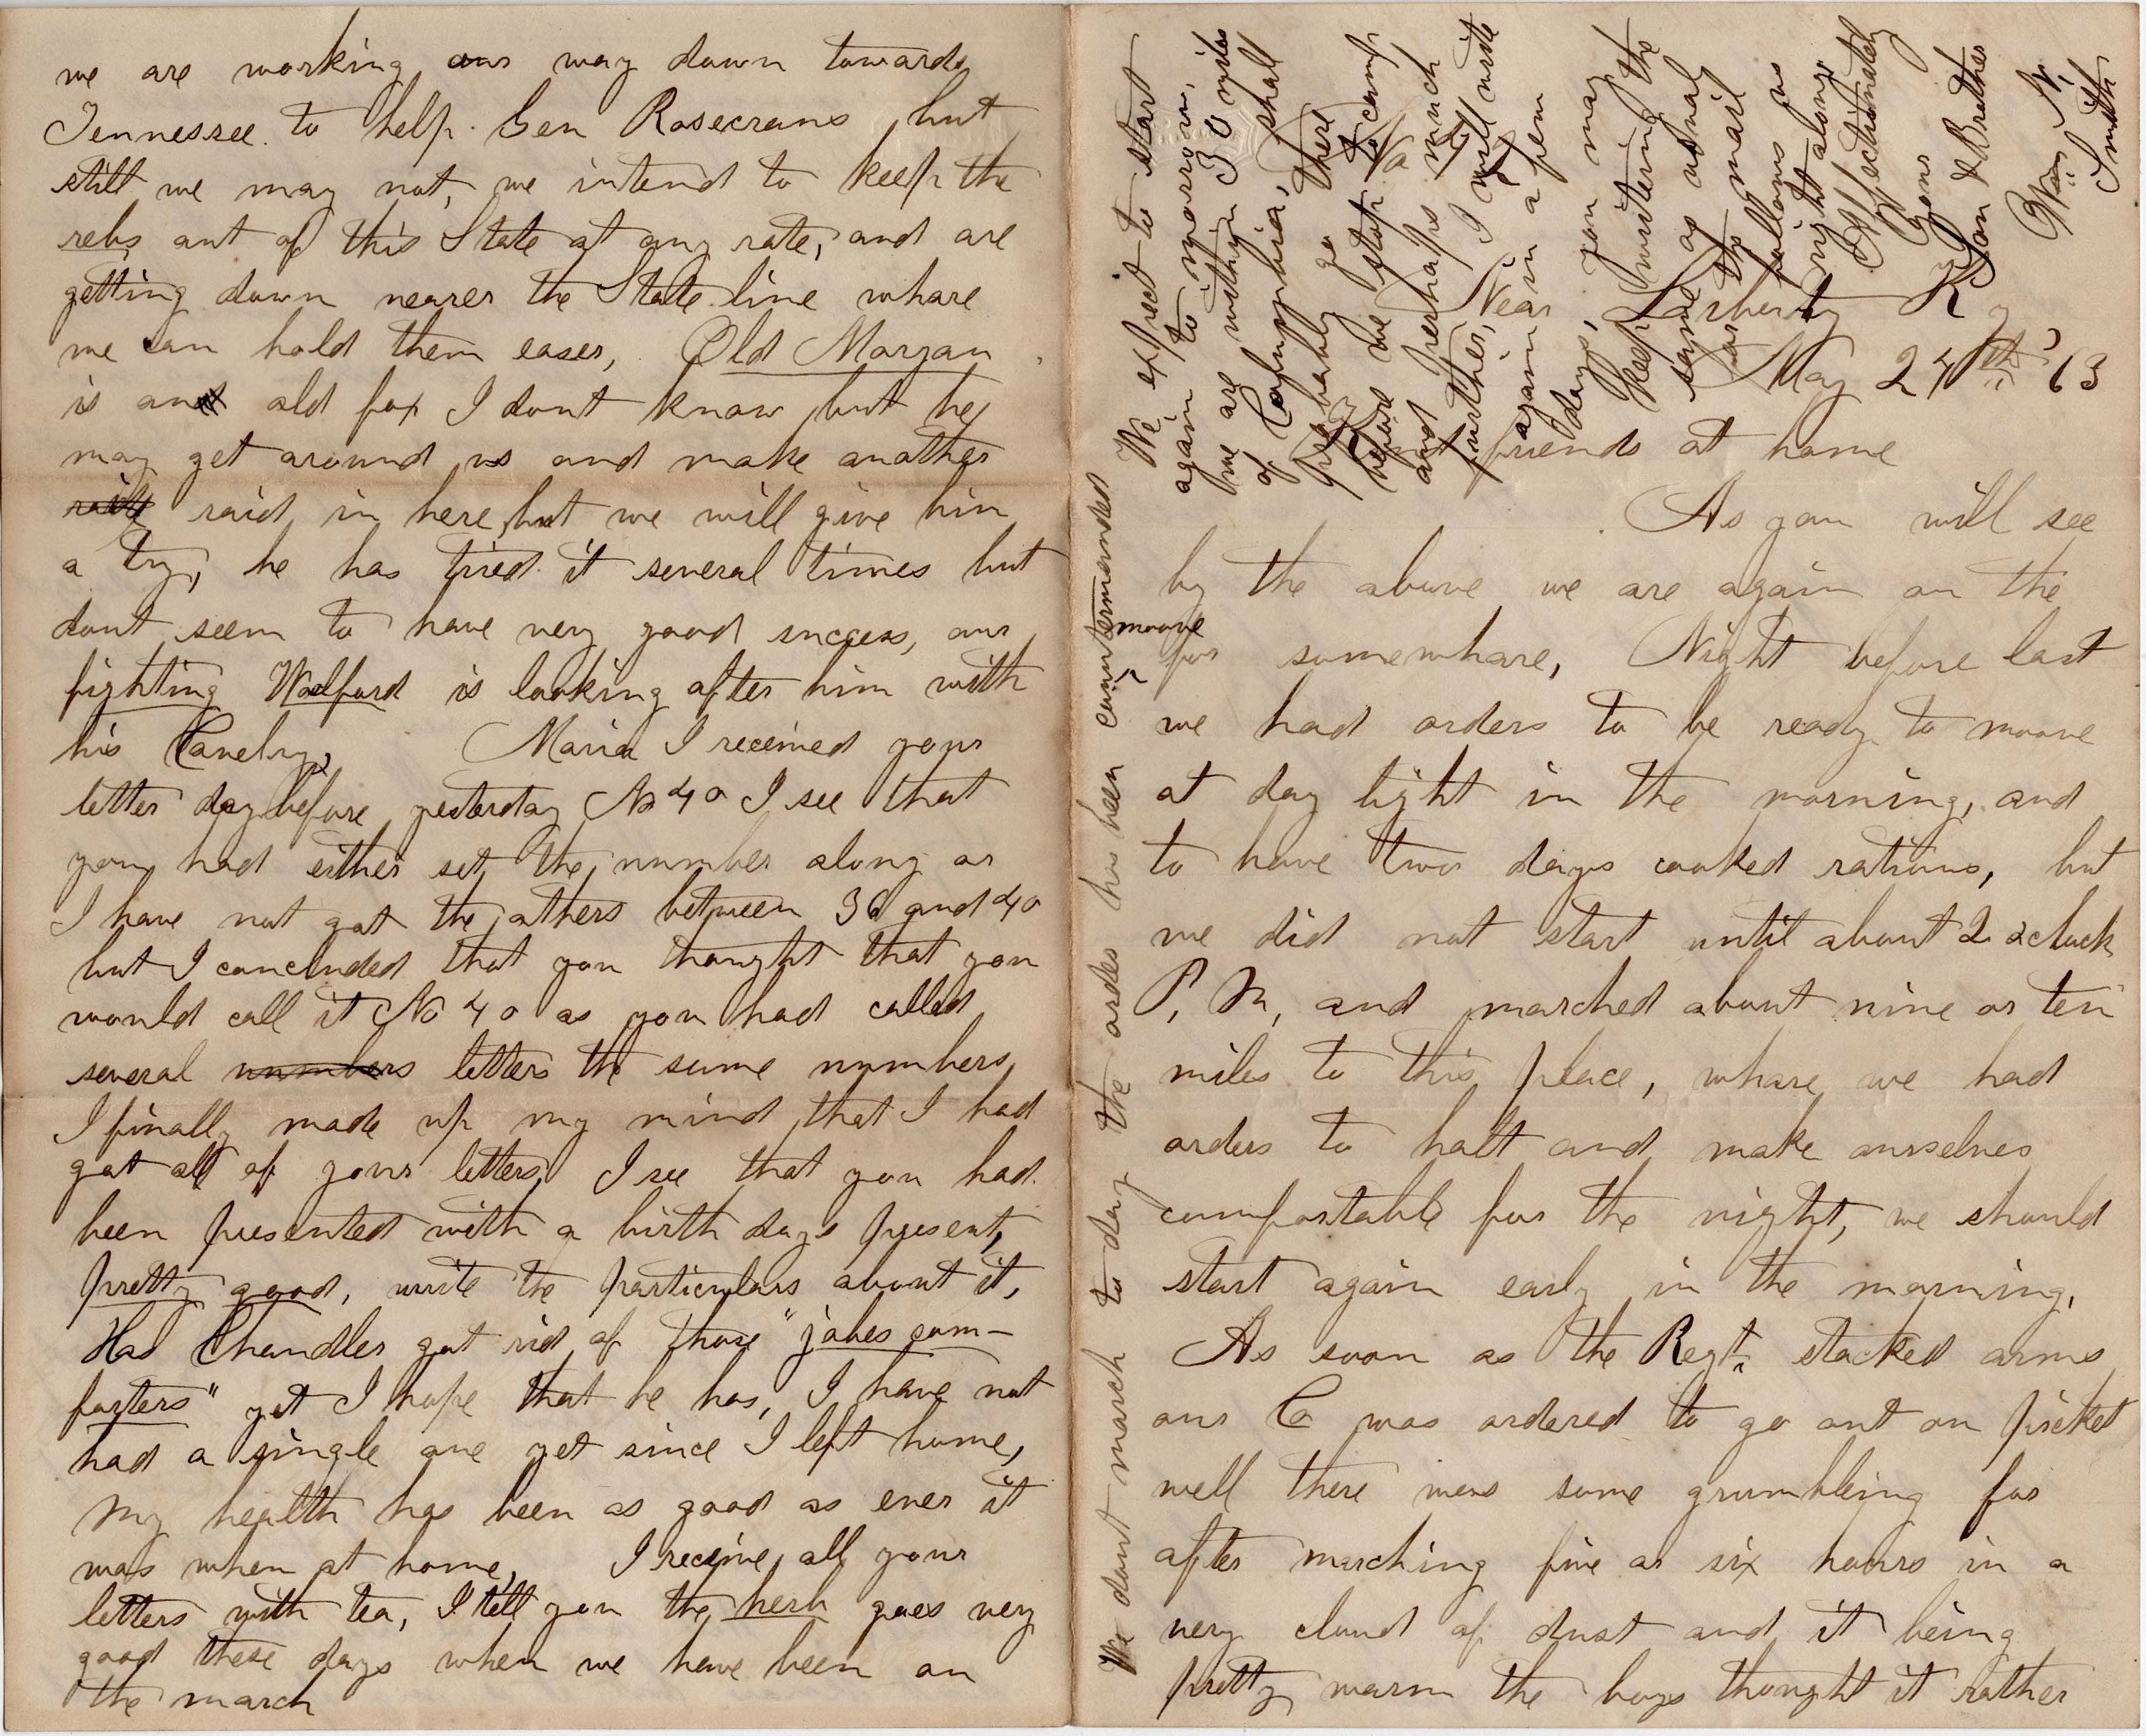 we are working our way down towards
Tennessee to help Gen Rosecrans but
still we may not, we intend to keep the
rebs out of this State at any rate, and are
getting down nearer the State line whare
we can hold them eases, Old Morgan
is an old fox I dont know but he
may get around us and make another
raid raid in here, but we will give him
a try, he has tried it several times but
dont seem to have very good success, our
fighting Wolford is looking after him with
his Cavelry, Maria I received your
letter day before yesterday No 40 I see that
you had either set the number along or
I have not got the others between 36 and 40
but I concluded that you thought that you
would call it No 40 as you had called
several numbers letters the same numbers
I finally made up my mind that I had
got all of your letters, I see that you had
been presented with a birth days present,
pretty good, write the particulars about it,
Has Chandler got rid of those "jobes com-
forters" yet I hope that he has, I have not
had a single one yet since I left home,
My health has been as good as ever it
was when at home, I receive all your
letters with tea, I tell you the herb goes very
good these days when we have been on
the march
Near Larberty Ky
May 24th '63
friends at home
As you will see
by the above we are again on the
moove
for somewhare, Night before last
we had orders to be ready to moove
at day light in the morning, and
to have two days cooked rations, but
we did not start until about 2 oclock
P, M, and marched about nine or ten
miles to this place, whare we had
orders to halt and make ourselves
comfortable for the night, we should
start again early in the morning,
As soon as the Regt. stacked arms
our Co was ordered to go out on picket
well there were some grumbleing for
after marching five or six hours in a
very cloud of dust and it being
pretty warm the boys thought it rather
We expect to start
again to morrow,
we are within 30 miles
of Columbia, shall
probarbly go there
before we stop to camp
and perhaps No much
further, I will write
again in a fem
days, you may
keep writing the
same as usual
for the mail
follows us
right along
Affectionately
Yours
Son & Brother
Wm N.
Smith
We dont march to day the order has been countermanded